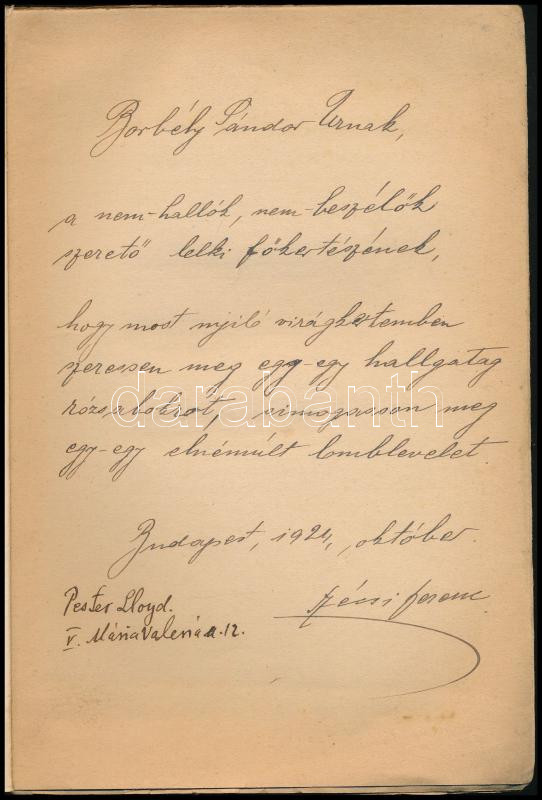 Borbély Sándor Urnak,
a nem-hallók, nem-beszélők
szerető lelki főkertészének,
hogy most nyiló virágkertemben
szeressen meg egy-egy hallgatag
rózsabokrot, simogasson meg
egy-egy elnémúlt lomblevelet
Budapest, 1924, október.
Pester Lloyd.
Ferenc
V. Mária Valeria u. 12.
darabanth